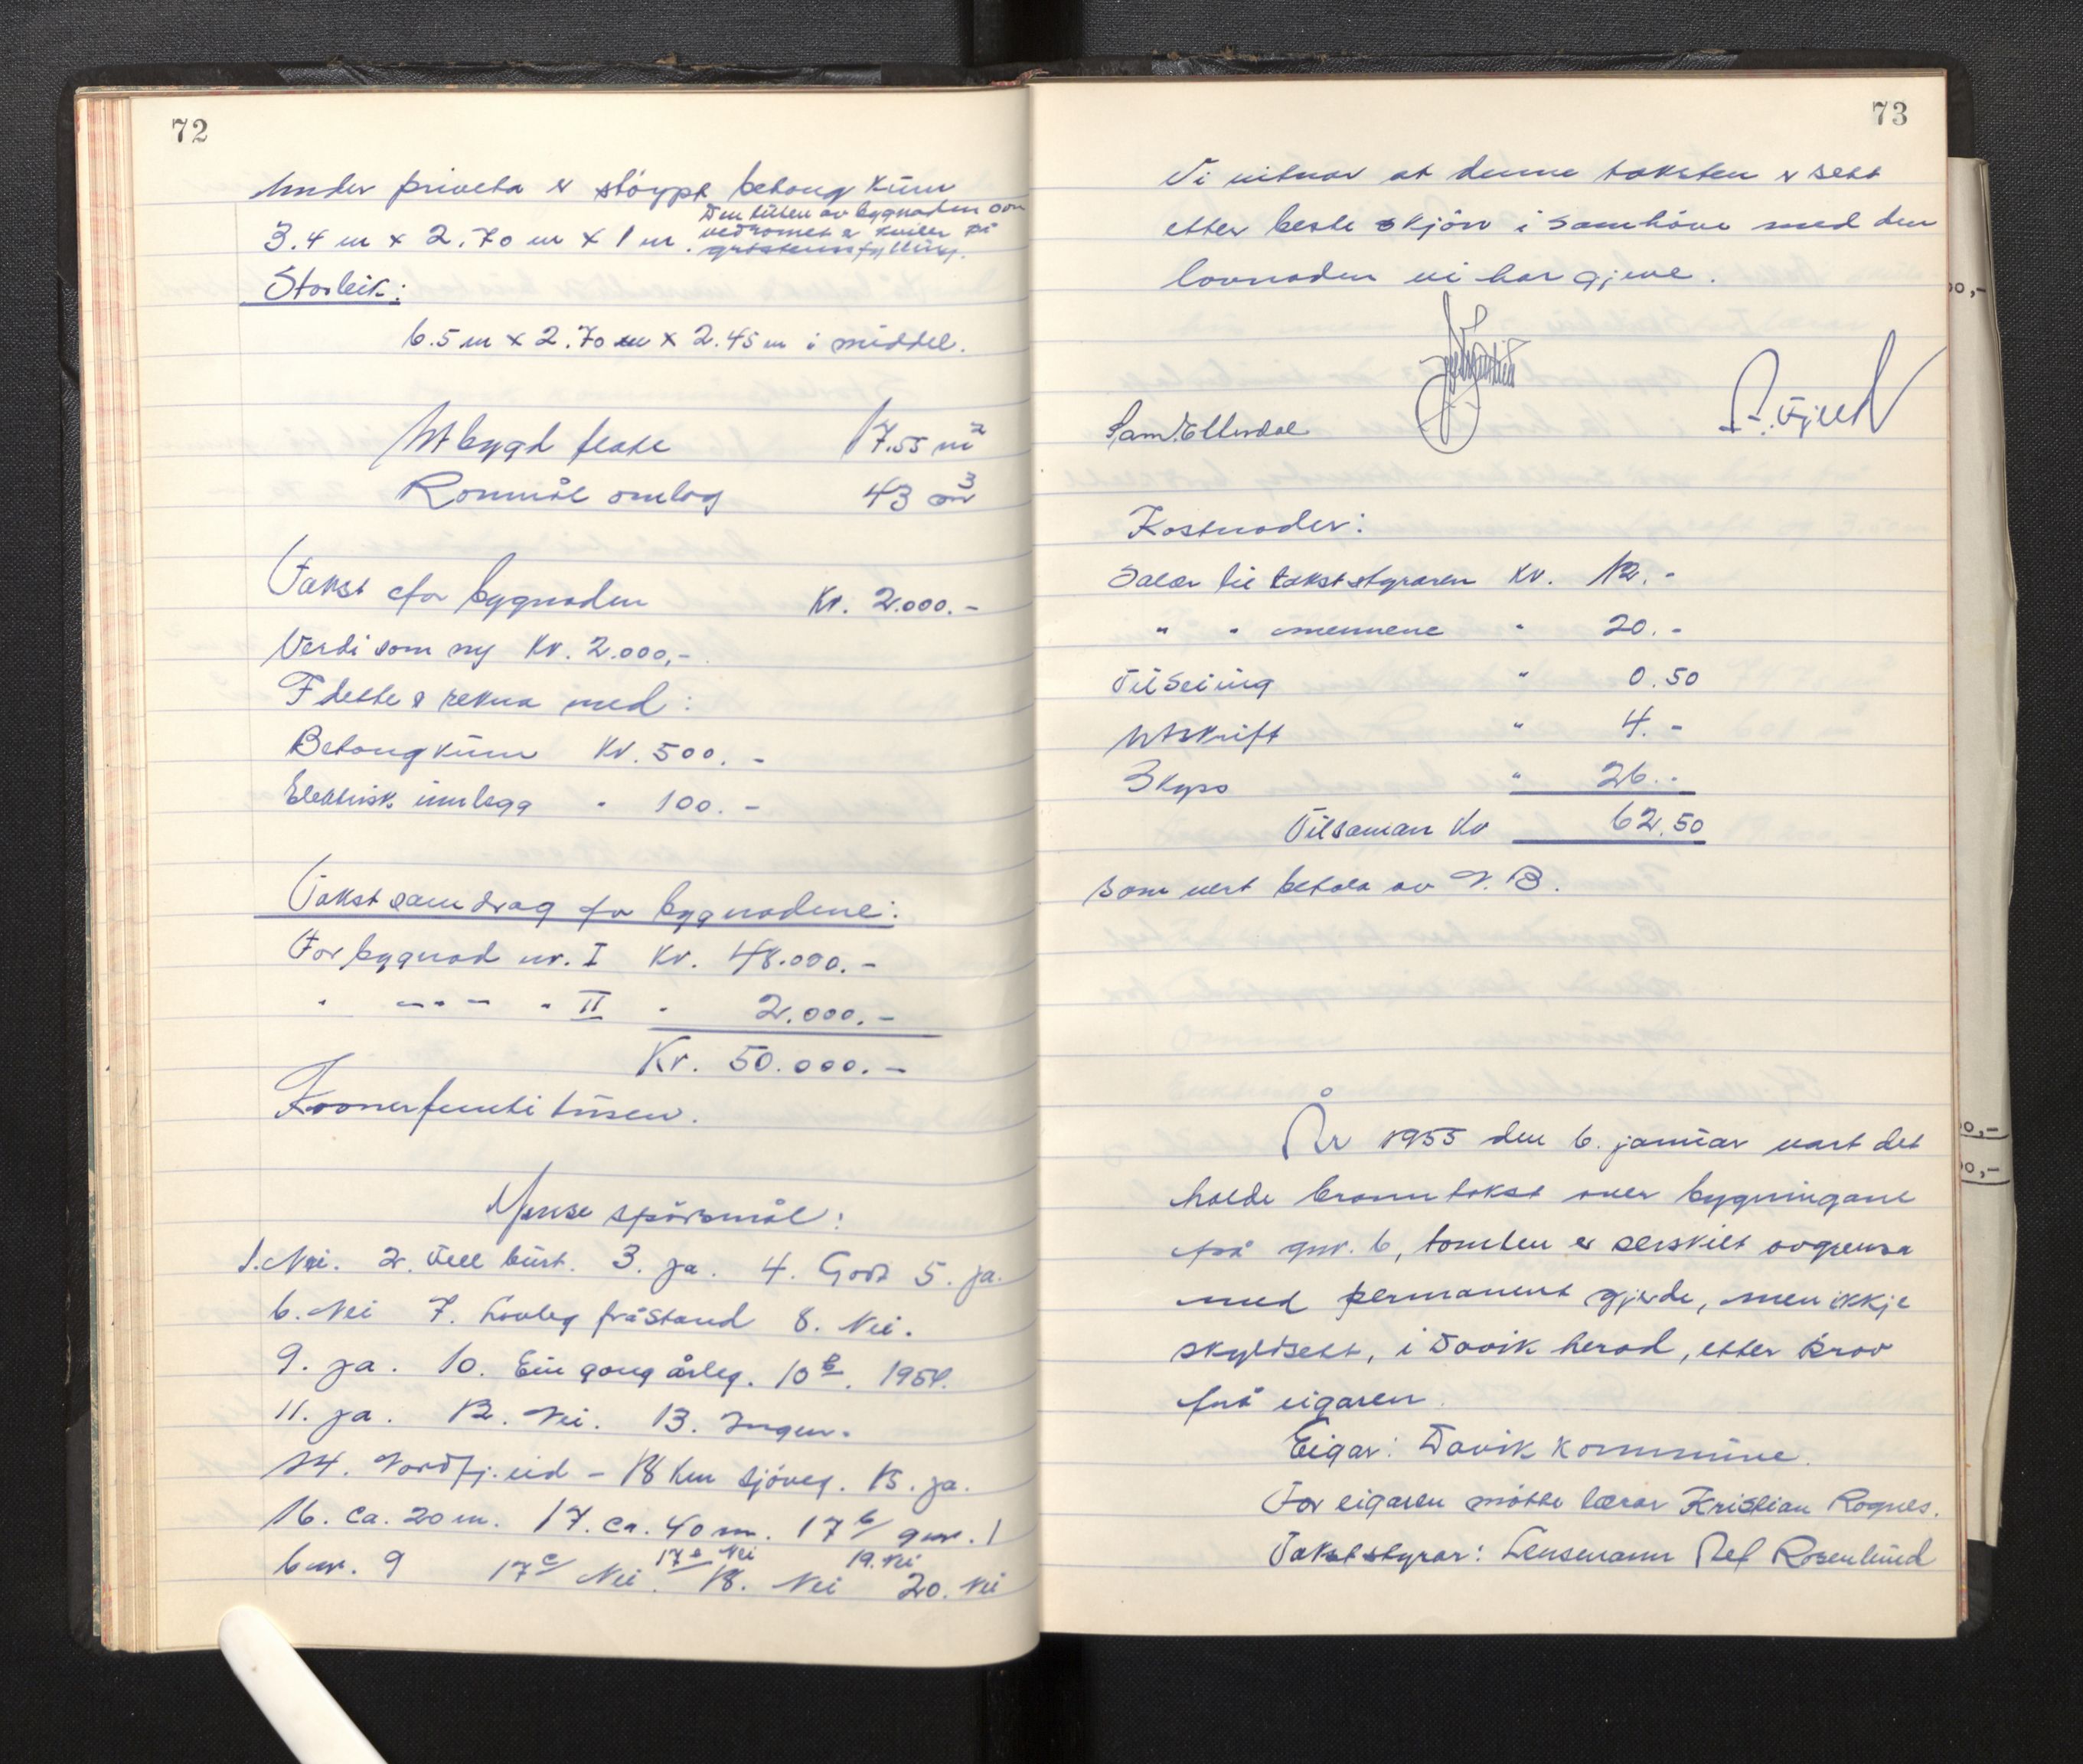 72
Under priveta er støypt betong kum
Den luten av bygnaden som
3.4 m x 2.70 m x 1 m. vedromet er kviler på
gråsteinsfylling.
Storleik:
6.5 m x 2.70 m x 2.45 m i middel.
Utbygd flate 17.55 m²
Rommål omlag 43 m³
Takst for bygnaden Kr. 2.000.-
Verdi som ny Kr. 2.000,-
I dette er rekna med:
Betongkum Kr. 500.-
Elektrisk innlegg " 100.-
Takstsamdrag for bygnadene:
For bygnad nr. I Kr. 48.000.-
" -"- " II " 2.000.-
Kr. 50.000.-
Kronerfemtitusen.
Ymse spörsmål:
1. Nei. 2. Till bust. 3. ja. 4. God 5. ja.
6. Nei 7. Lovleg fråstand 8. Nei.
9. ja. 10. Ein gong årleg. 10 b. 1954.
11. ja. 12. Nei. 13. Ingen.
14. Nordfj.eid - 18 km sjöveg. 15. ja.
16. ca. 20 m. 17. ca. 40 m. 17 b/ gnr. 1
bnr. 9 17 c/ Nei. 17 d Nei 18. Nei 19. Nei 20. Nei
73
Vi vitnar at denne taksten er sett
etter beste skjön i samhöve med den
lovnaden vi har gjeve.
Sam. Ellendal
Kostnader:
Salær til takststyraren Kr. 12.-
" " mennene " 20.-
Tilseiing " 0.50
Utskrift " 4.-
Skyss " 26.-
Tilsaman Kr 62.50
som vert betala av N. B.
År 1955 den 6. januar vart det
halde branntakst over bygningane
på gnr. 6, tomten er serskilt avgrensa
med permanent gjerde, men ikkje
skyldsett, i Davik herad, etter krav
frå eigaren.
Eigar: Davik kommune.
For eigaren møtte lærar Kristian Rognes.
Takststyrar: Lensmann Alf Rosenlund